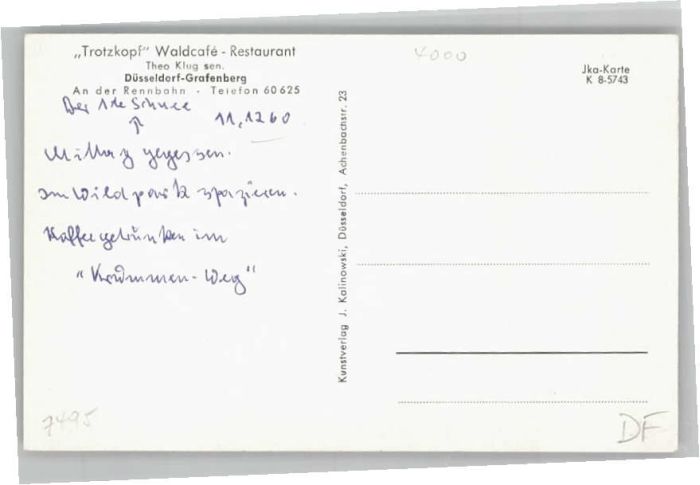 „Trotzkopf" Waldcafé - Restaurant
Theo Klug sen.
Düsseldorf-Grafenberg
An der Rennbahn - Telefon 60625
Der 1te Schnee
11.1260
Mittag gegessen.
im Wildpark spazieren.
Kaffee getrunken im
"Krummen-Weg"
7495
Kunstverlag J. Kalinowski, Düsseldorf, Achenbachstr. 23
4000
Jka-Karte
K 8-5743
DF